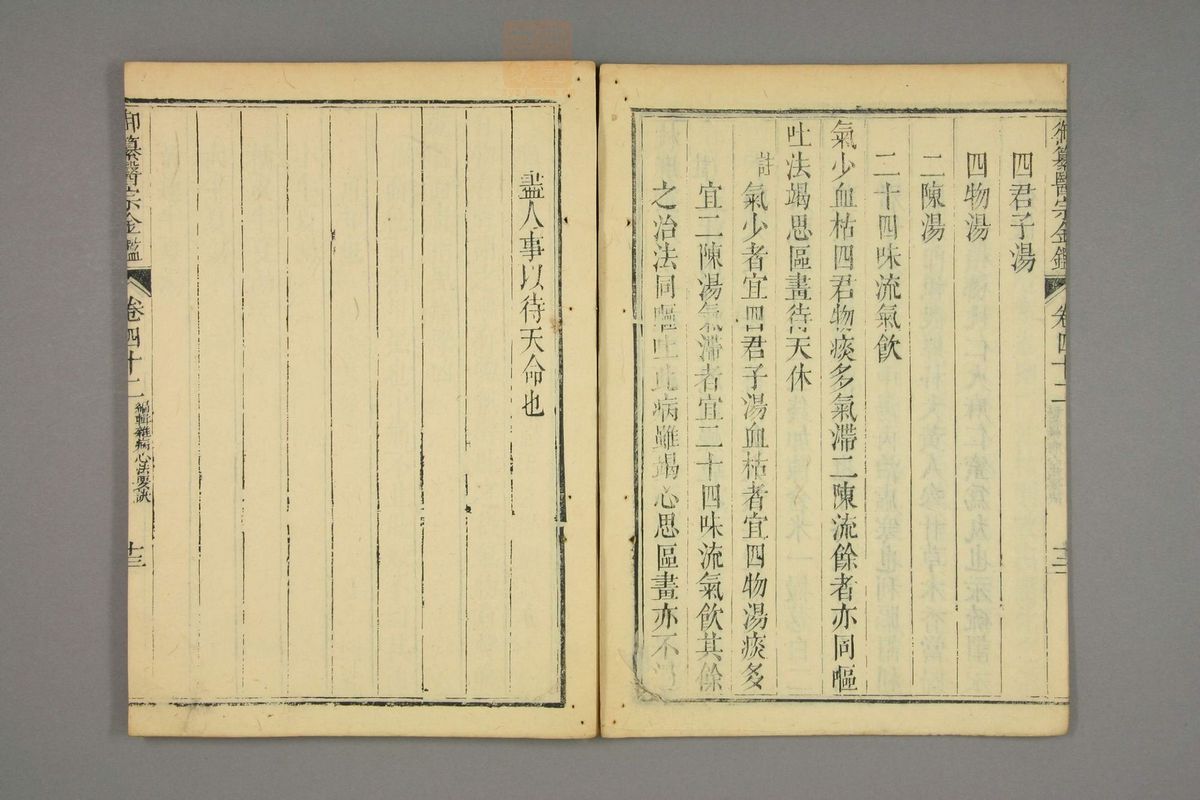 御纂醫宗金鑑 卷四十二
四君子湯
四物湯
二陳湯
二十四味流氣飲
氣少血枯四君物痰多氣滯二陳流餘者亦同嘔
吐法竭思區畫待天休
註 氣少者宜四君子湯血枯者宜四物湯痰多
宜二陳湯氣滯者宜二十四味流氣飲其餘
之治法同嘔吐此病雖竭心思區畫亦不過
盡人事以待天命也
御纂醫宗金鑑 卷四十二 編輯雜病心法要訣 十三